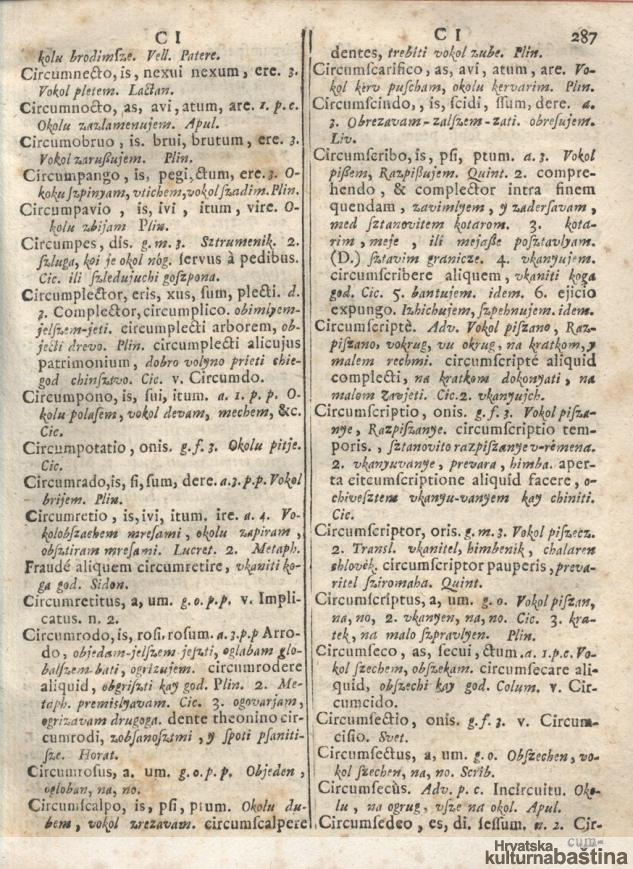 C I
kolu brodimsze. Vell. Patere.
Circumnecto, is, nexui nexum, ere. 3.
Vokol pletem. Lactan.
Circumnocto, as, avi, atum, are. 1. p. c.
Okolu zazlamenujem. Apul.
Circumobruo, is. brui, brutum, ere. 3.
Vokol zarußujem. Plin.
Circumpango, is, pegi, ctum, ere. 3. O-
koku szpinyam, vtichem, vokol szadim. Plin.
Circumpavio, is, ivi, itum, vire. O-
kolu zbijam Plin.
Circumpes, dis. g. m. 3. Sztrumenik. 2.
szluga, koi je okol nòg. ſervus à pedibus.
Cic. ili szledujuchi goszpona.
Circumplector, eris, xus, ſum, plecti. d.
3. Complector, circumplico. obimlyem-
jelszem-jeti. circumplecti arborem, ob-
jecti drevo. Plin. circumplecti alicujus
patrimonium, dobro volyno prieti chie-
god chinsztvo. Cic. v. Circumdo.
Circumpono, is, ſui, itum. a. 1. p. p. O-
kolu polasem, vokol devam, mechem, &c.
Cic.
Circumpotatio, onis. g. f. 3. Okolu pitje.
Cic.
Circumrado, is, ſi, ſum, dere. a. 3. p. p. Vokol
brijem. Plin.
Circumretio, is, ivi, itum. ire. a. 4. Vo-
kolobszaehem mresami, okolu zapiram,
obsztiram mresami. Lucret. 2. Metaph.
Fraudé aliquem circumretire, vkaniti ko-
ga god. Sidon.
Circumretitus, a, um. g. o. p. p. v. Impli-
catus. n. 2.
Circumrodo, is, roſi, roſum. a. 3. p. p Arro-
do, objedam-jelszem-jeszti, oglabam glo-
balszem-bati, ogrizujem. circumrodere
aliquid, obgriszti kay god. Plin. 2. Me-
taph. premislyavam. Cic. 3. ogovarjam,
ogrizavam drugoga. dente theonino cir-
cumrodi, zobsanosztmi, y spoti psaniti-
sze. Horat.
Circumroſus, a. um. g. o. p. p. Objeden,
ogloban, na, no.
Circumſcalpo, is, pſi, ptum. Okolu du-
bem, vokol zrezavam. circumſcalpere
C I 287
dentes, trebiti vokol zube. Plin.
Circumſcarifico, as, avi, atum, are. Vo-
kol kerv puscham, okolu kervarim. Plin.
Circumſcindo, , is, ſcidi, ſſum, dere. a.
3. Obrezavam-zalszem-zati. obresujem.
Liv.
Circumſcribo, is, pſi, ptum. a. 3. Vokol
pißem, Razpißujem. Quint. 2. compre-
hendo, & complector intra finem
quendam, zavimlyem, y zadersavam,
med sztanovitem kotarom. 3. kota-
rim, meje, ili mejaße posztavlyam.
(D.) sztavim granicze. 4. vkanyujem.
circumſcribere aliquem, vkaniti koga
god. Cic. 5. bantujem. idem. 6. ejicio
expungo. Izhichujem, szpehnujem. idem.
Circumſcriptè. Adv. Vokol piszano, Raz-
piszano, vokrug, vu okrug, na kratkom, y
malem rechmi. circumſcriptè aliquid
complecti, na kratkom dokonyati, na
malom zavjeti. Cic. 2. vkanyujch.
Circumſcriptio, onis. g. f. 3. Vokol pisza-
nye, Razpiszanye. circumſcriptio tem-
poris., sztanovito razpiszanye vremena.
2. vkanyuvanye, prevara, himba. aper-
ta citcumſcriptione aliquid facere, o-
chivesztem vkanyu-vanyem kay chiniti.
Cic.
Circumſcriptor, oris. g. m. 3. Vokol piszecz.
2. Transl. vkanitel, himbenik, chalaren
chlovék. circumſcriptor pauperis, preva-
ritel sziromaha. Quint.
Circumſcriptus, a, um. g. o. Vokol piszan,
na, no, 2. vkanyen, na, no. Cic. 3. kra-
tek, na malo szpravlyen. Plin.
Circumſeco, as, ſecui, ctum. a. 1. p. c. Vo-
kol szechem, obszekam. circumſecare ali-
quid, obszechi kay god. Colum. v. Cir-
cumcido.
Circumſectio, onis. g. f. 3. v. Circum-
ciſio. Svet.
Circumſectus, a, um. g. o. Obszechen, vo-
kol szechen, na, no. Scrib.
Circumſecùs. Adv. p. c. Incircuitu. Oko-
lu, na ogrug, vsze na okol. Apul.
Circumſedeo, es, di. ſeſſum. n. 2. Cir-
cum-
Hrvatska
kulturnabaština